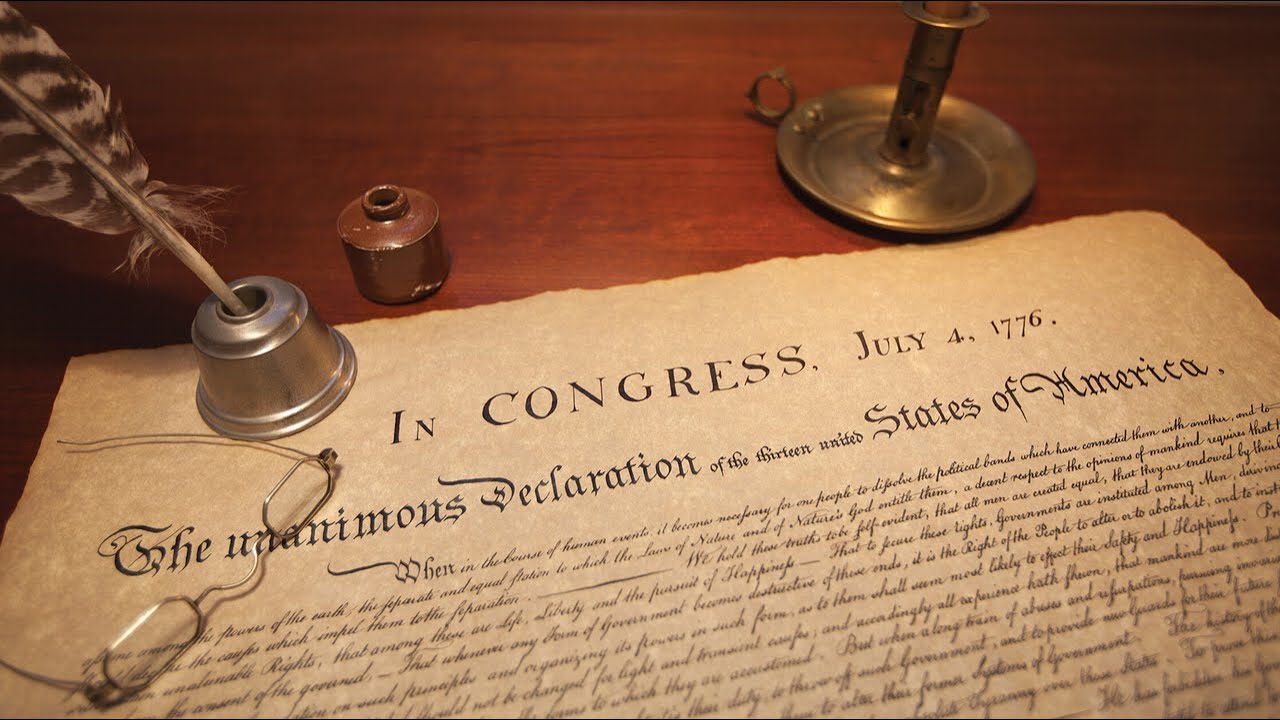 In CONGRESS, July 4, 1776.
The unanimous Declaration of the thirteen united States of America,
When in the Course of human events, it becomes necessary for one people to dissolve the political bands which have connected them with another, and to
among the powers of the earth, the separate and equal station to which the Laws of Nature and of Nature's God entitle them, a decent respect to the opinions of mankind requires that
the causes which impel them to the separation. We hold these truths to be self-evident, that all men are created equal, that they are endowed by their
unalienable Rights, that among these are Life, Liberty and the pursuit of Happiness — That to secure these rights, Governments are instituted among Men,
the consent of the governed, — That whenever any Form of Government becomes destructive of these ends, it is the Right of the People to alter or to abolish it, and to
on such principles and organizing its powers in such form, as to them shall seem most likely to effect their Safety and Happiness.
should not be changed for light and transient causes; and accordingly all experience hath shewn, that mankind are more
to which they are accustomed. But when a long train of abuses and usurpations, pursuing
their duty, to throw off such Government, and to provide new Guards for their future
to alter their former Systems of Government. The history of the
Tyranny over these States. To prove this
He has forbidden his